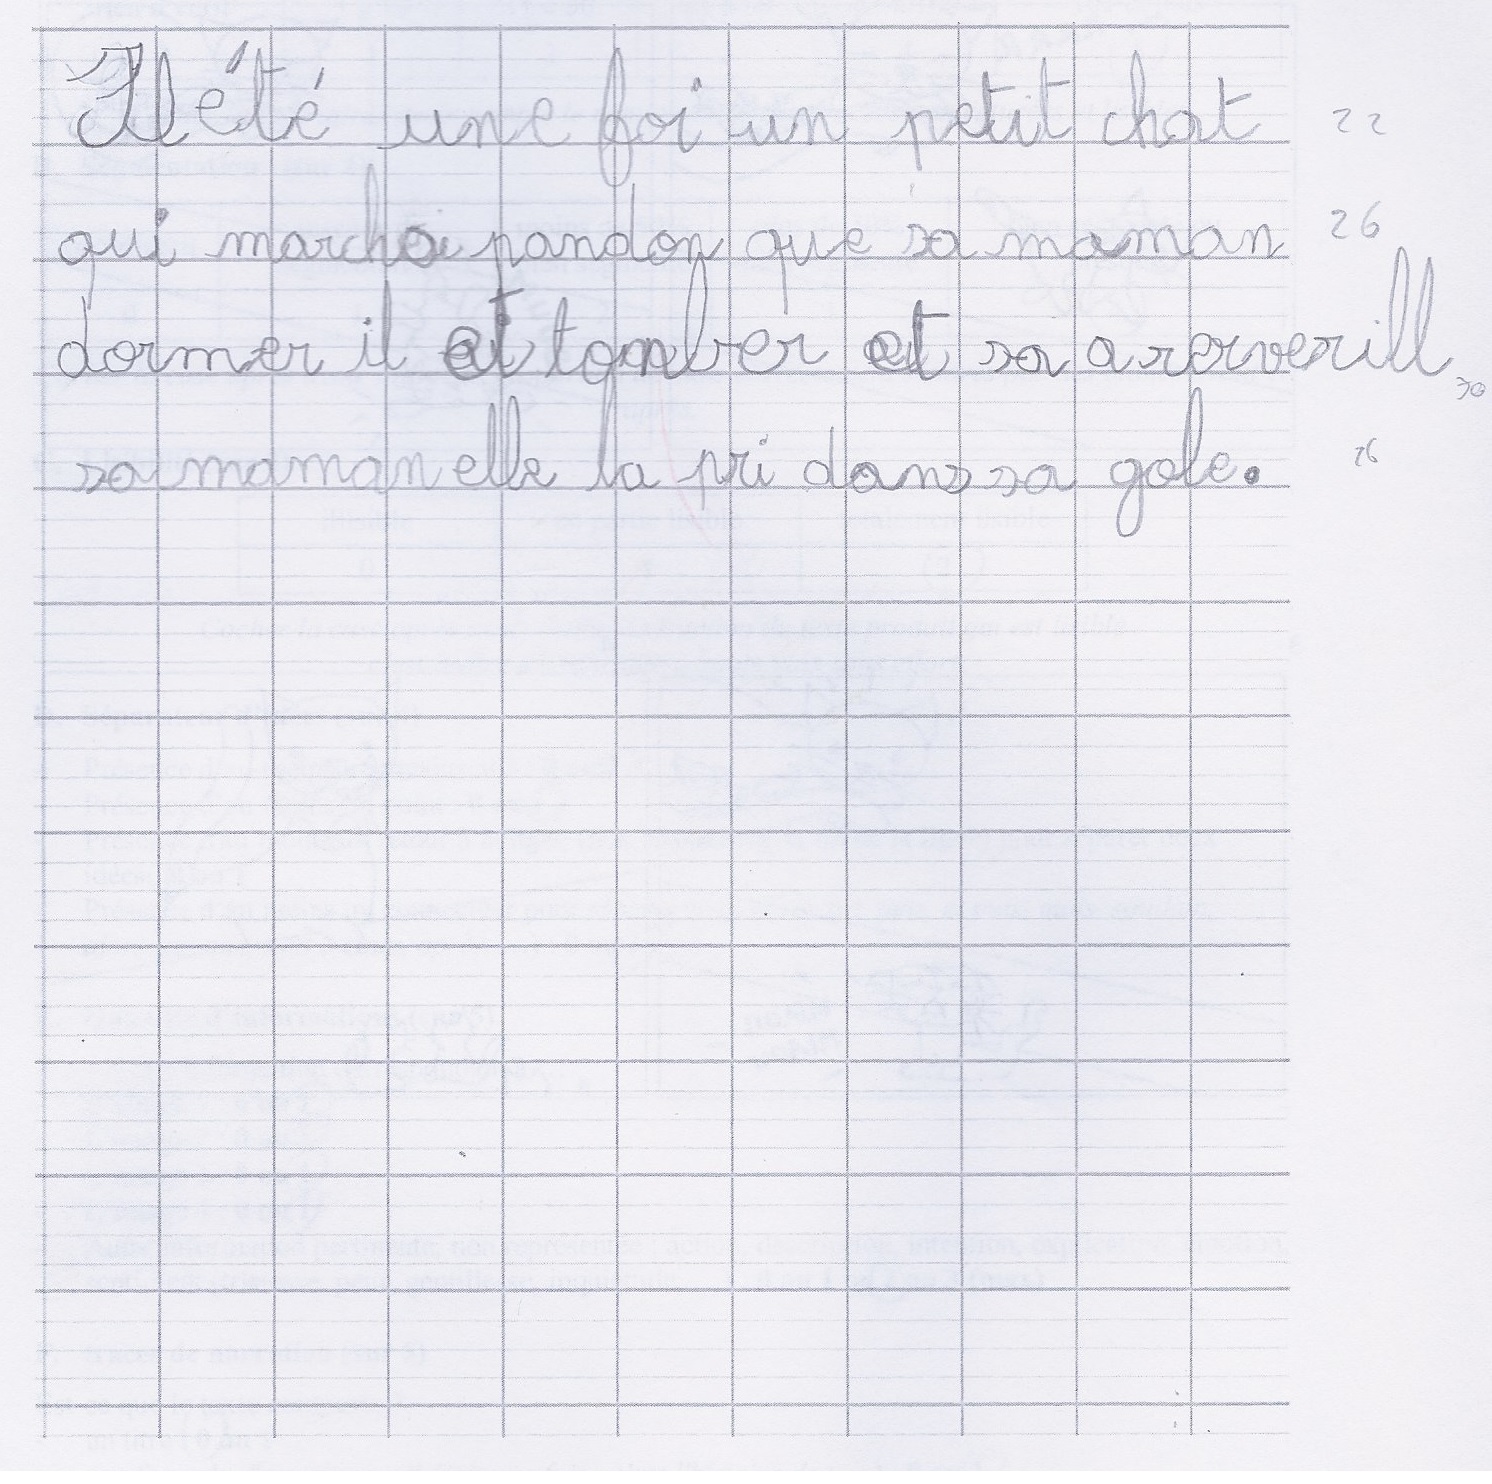 Il été une foi un petit chat 22
qui marchai pandon que sa maman 26
dormer il et tomber et sa a rerverill 30
sa maman elle la pri dans sa gole. 26